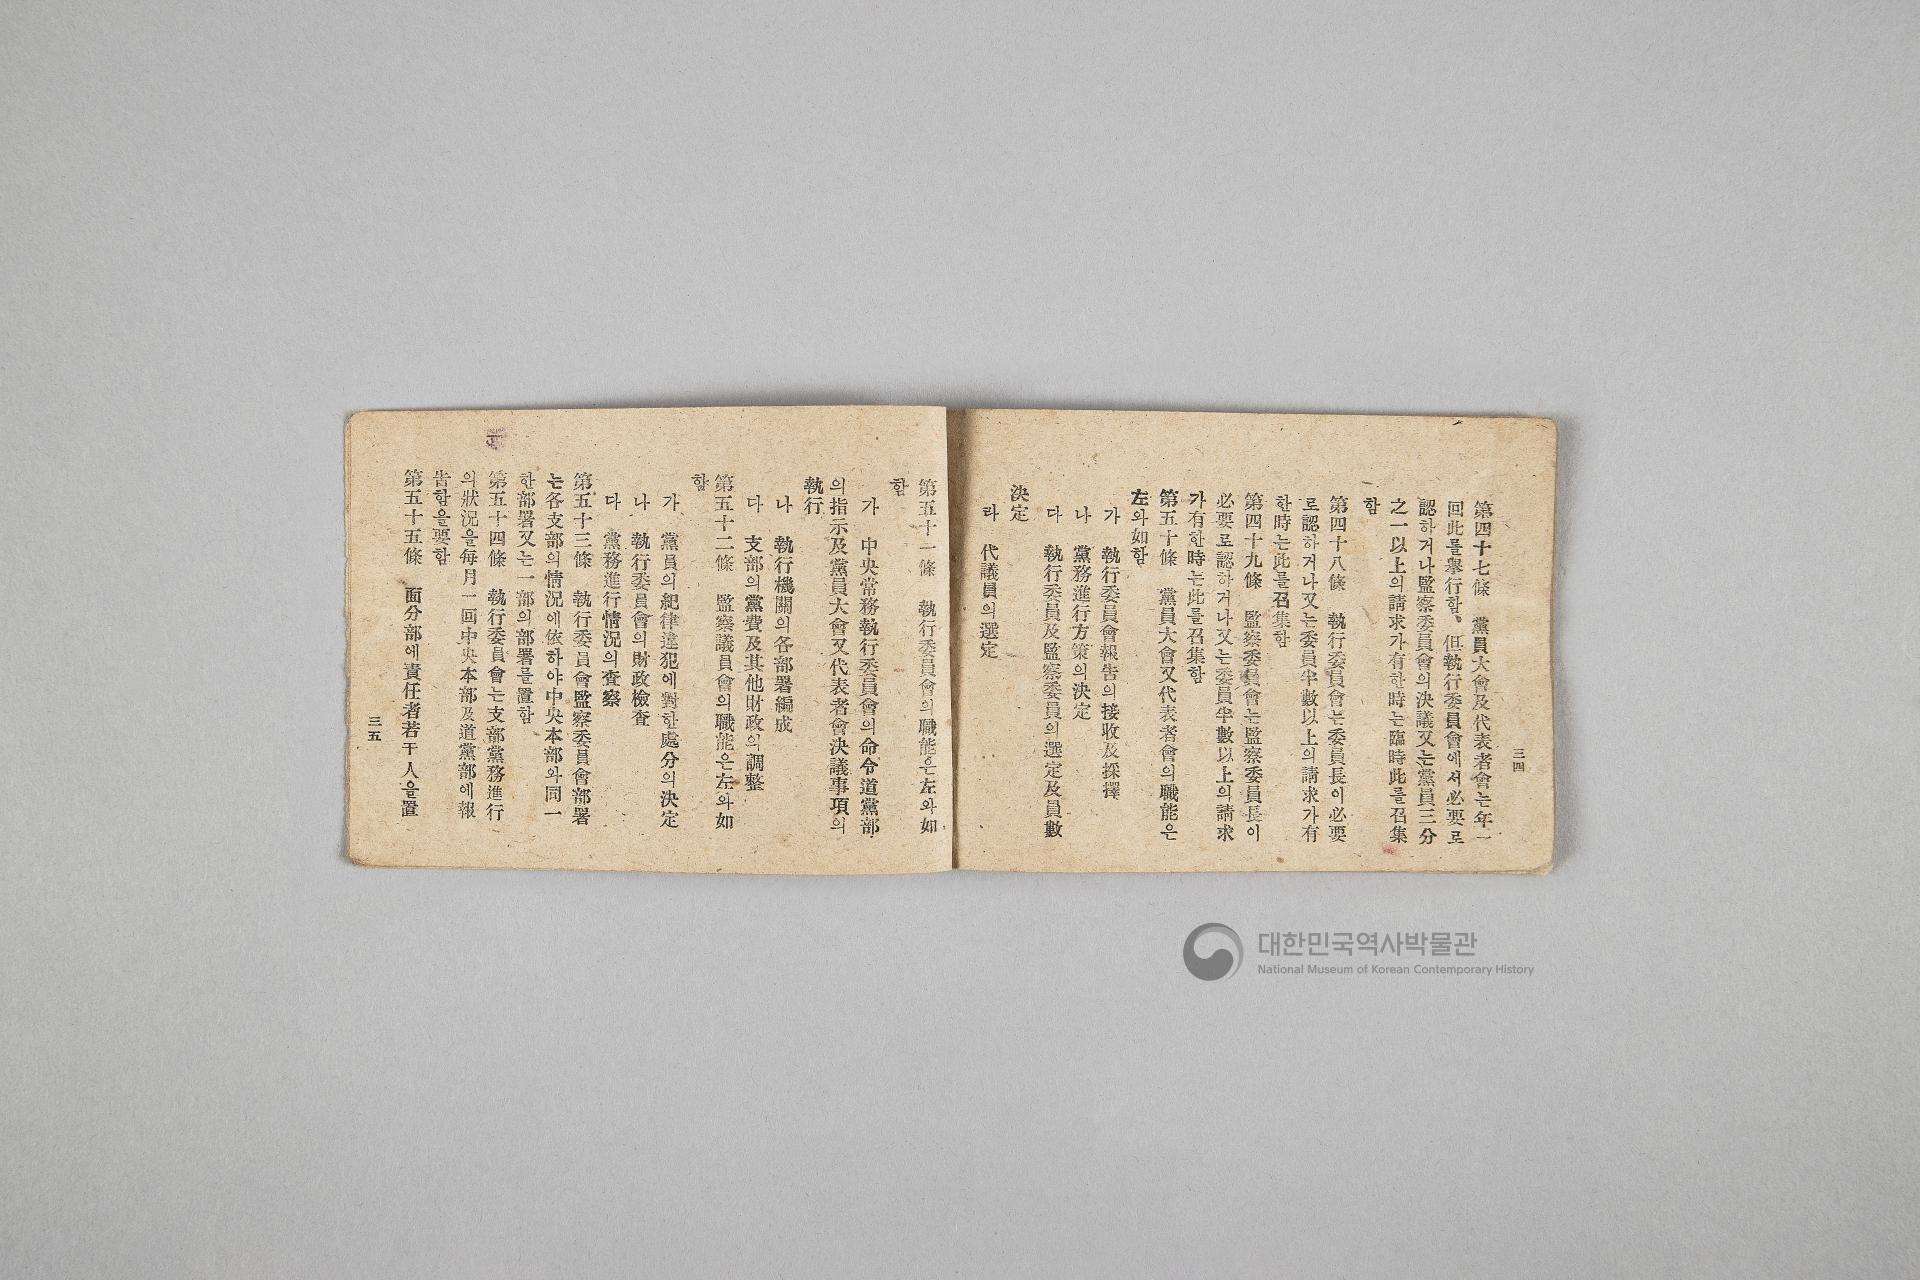 第四十七條 黨員大會及代表者會는年一
回此를擧行함、但執行委員會에서必要로
認하거나監察委員會의決議又는黨員三分
之一以上의請求가有한時는臨時此를召集
함
第四十八條 執行委員會는委員長이必要
로認하거나又는委員半數以上의請求가有
한時는此를召集함
第四十九條 監察委員會는監察委員長이
必要로認하거나又는委員半數以上의請求
가有한時는此를召集함
第五十條 黨員大會又代表者會의職能은
左와如함
가 執行委員會報告의接收及採擇
나 黨務進行方策의決定
다 執行委員及監察委員의選定及員數
決定
라 代議員의選定
三四
第五十一條 執行委員會의職能은左와如
함
가 中央常務執行委員會의命令道黨部
의指示及黨員大會又代表者會決議事項의
執行
나 執行機關의各部署編成
다 支部의黨費及其他財政의調整
第五十二條 監察議員會의職能은左와如
함
가 黨員의紀律違犯에對한處分의決定
나 執行委員會의財政檢查
다 黨務進行情況의查察
第五十三條 執行委員會監察委員會部署
는各支部의情況에依하야中央本部와同一
한部署又는一部의部署를置함
第五十四條 執行委員會는支部黨務進行
의狀況을每月一回中央本部及道黨部에報
告함을要함
第五十五條 面分部에責任者若干人을置
三五
대한민국역사박물관
National Museum of Korean Contemporary History